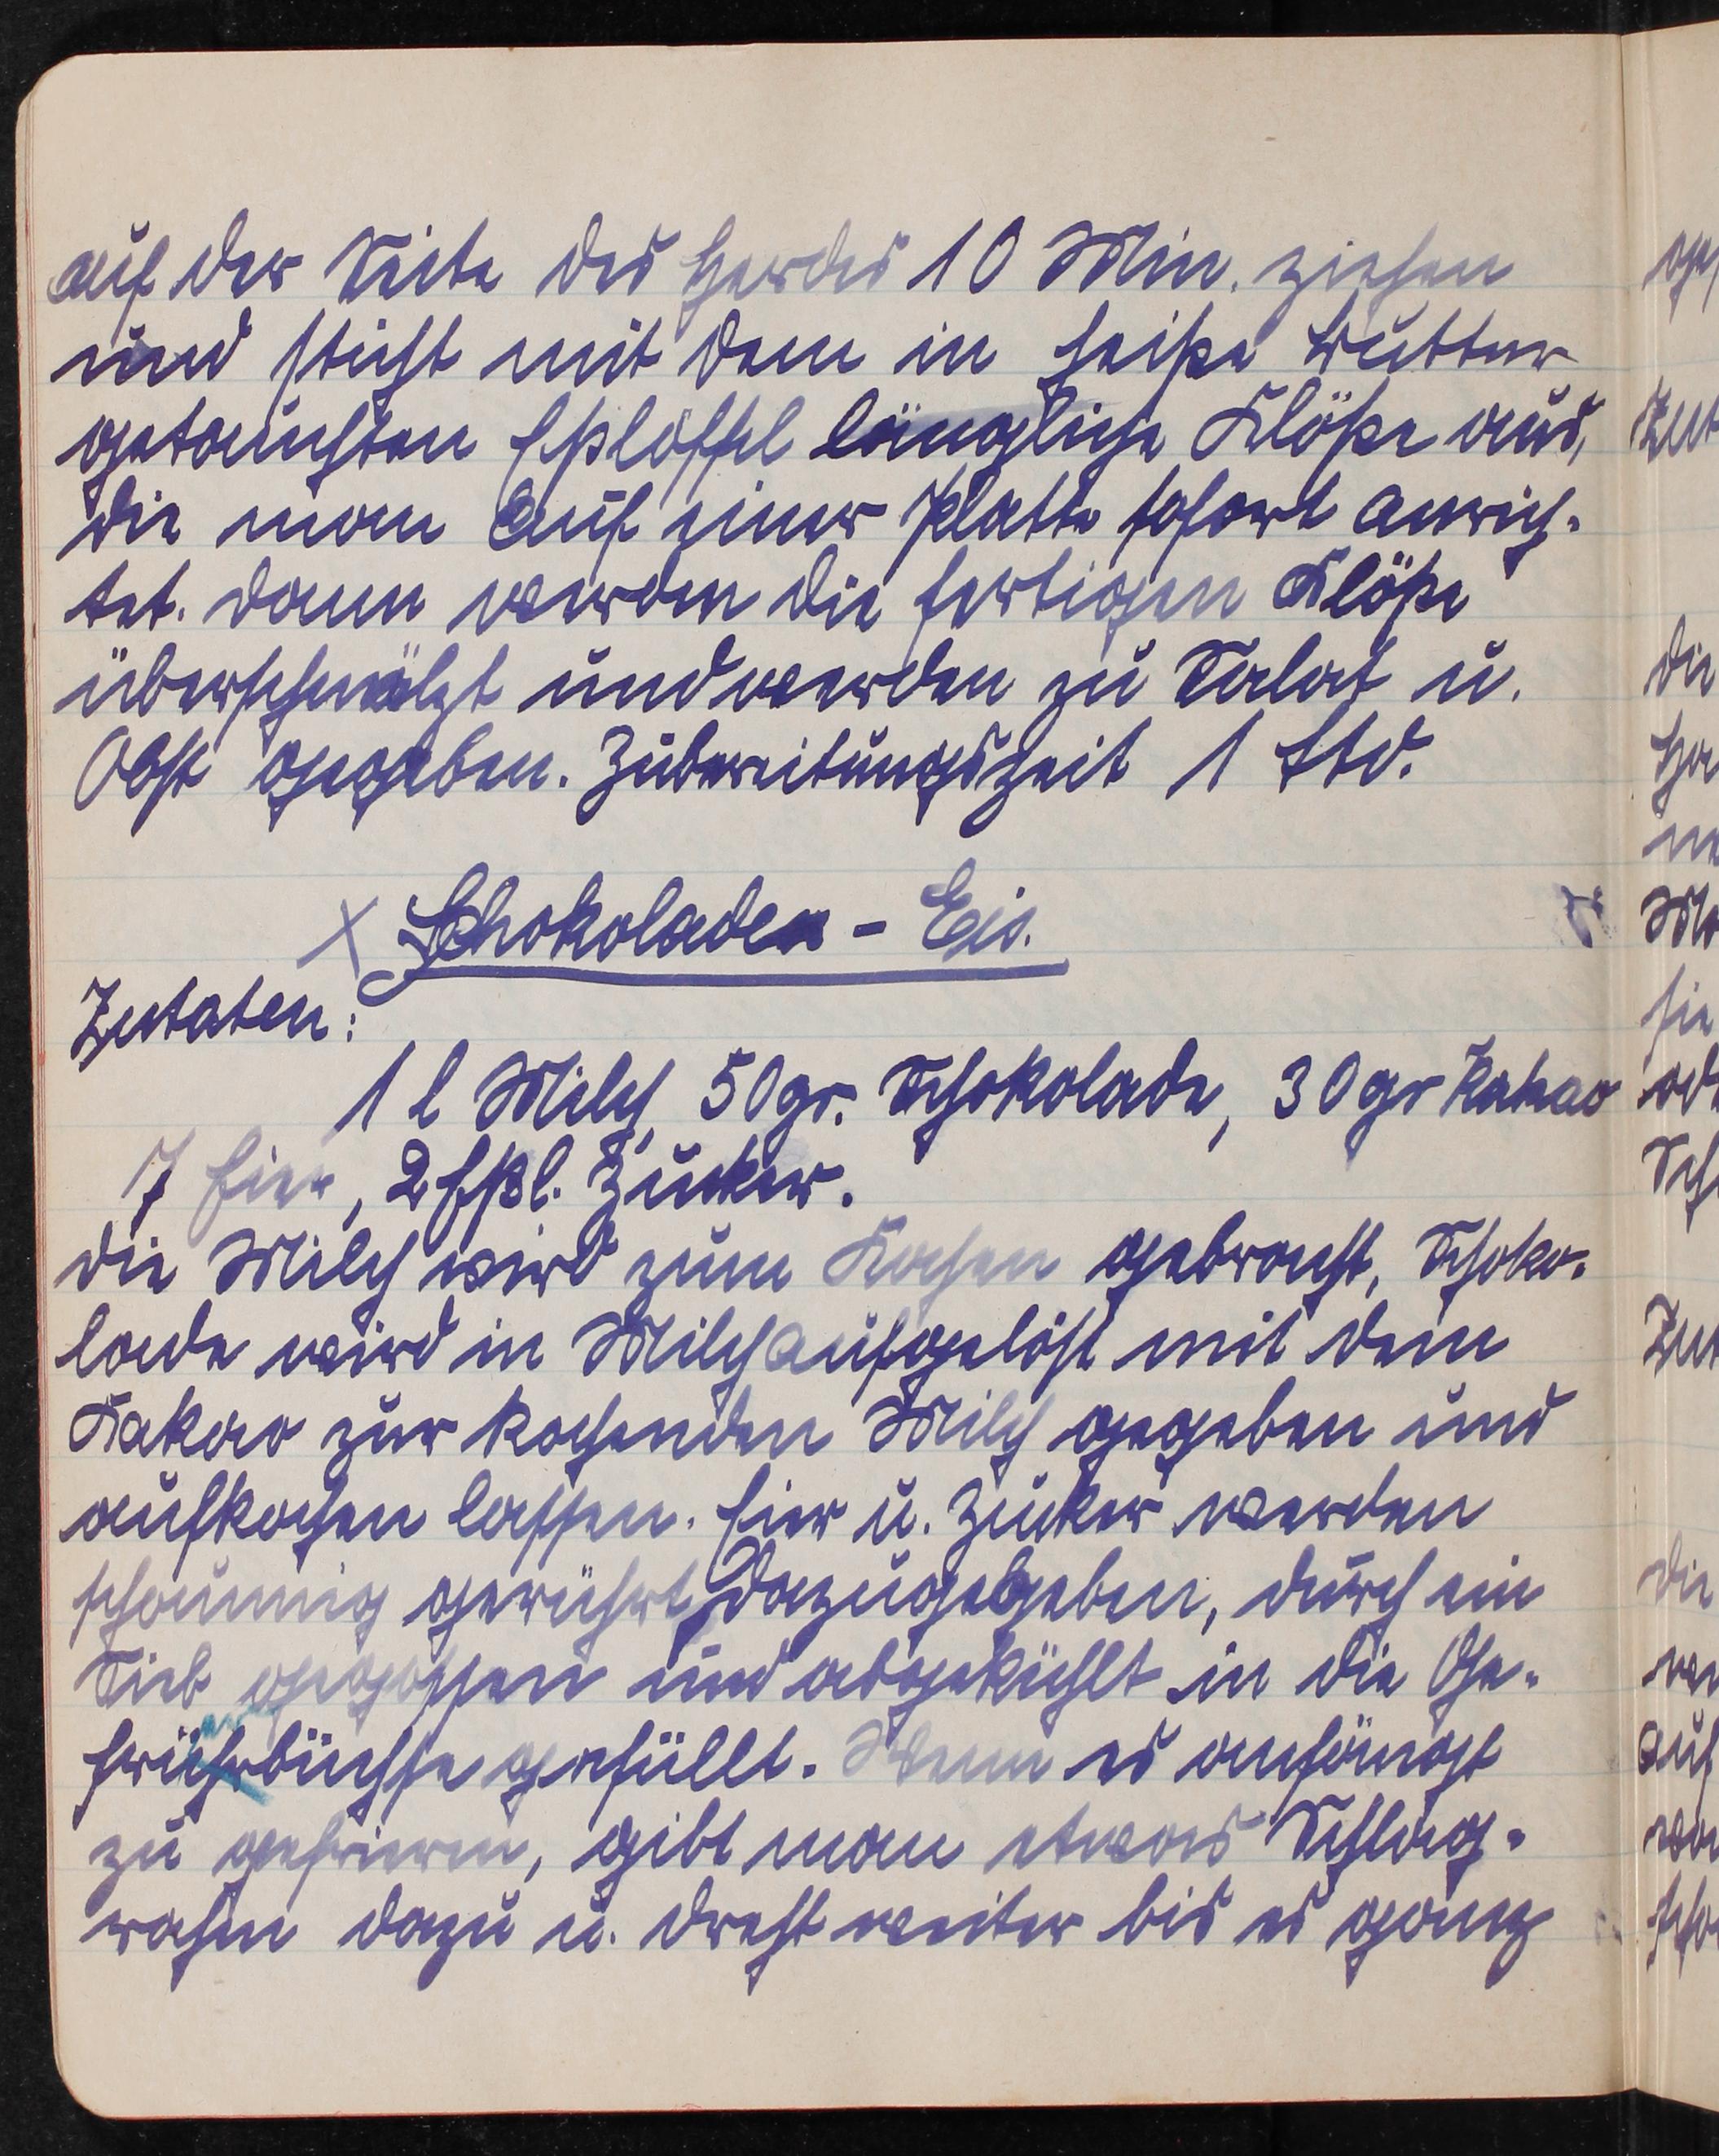 auf der Seite des Herdes 10 Min. ziehen
und sticht mit dem in heiße Butter
getauchten Eßlöffel längliche Klöße aus,
die man auf einer Platte sofort anrich-
tet. dann werden die fertigen Klöße
überschmälzt und werden zu Salat u.
Obst gegeben. Zubereitungszeit 1 Std.
x Schokoladen - Eis.
Zutaten:
1 l Milch, 50 gr. Schokolade, 30 gr Kakao
7 Eier, 2 Eßl. Zucker.
die Milch wird zum Kochen gebracht, Schoko-
lade wird in Milch aufgelöst mit dem
Kakao zur kochenden Milch gegeben und
aufkochen lassen. Eier u. Zucker werden
schaumig gerührt, dazugegeben, durch ein
Sieb gegossen und abgekühlt in die Ge-
frührbüchse gefüllt. Wenn es anfängt
zu gefrieren, gibt man etwas Schlag-
rahm dazu u. dreht weiter bis es ganz